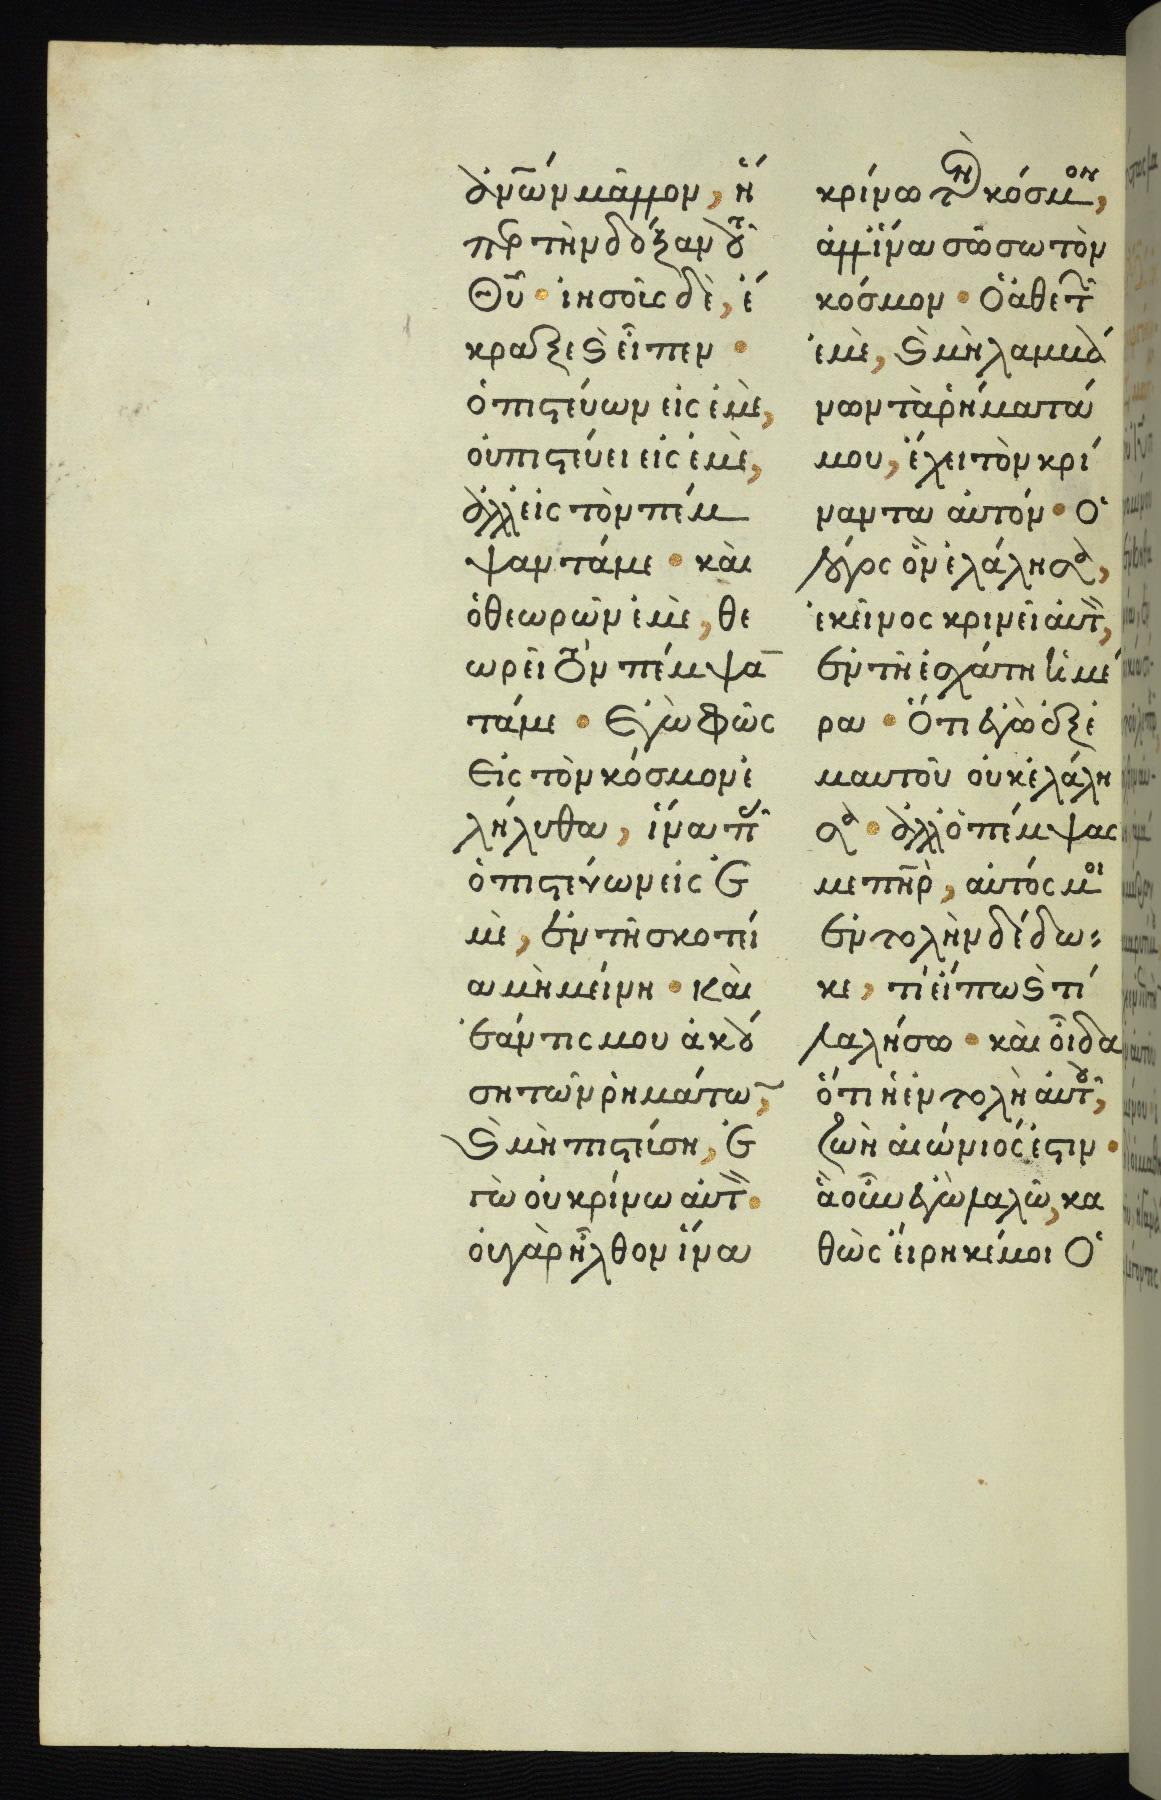 ἀνῶν μᾶλλον, ἤ
πρ τὴν δόξαν τοῦ
Θῦ · ἰησοῦς δὲ, ἔ
κραξε ϗ εἶπεν ·
ὁ πιστεύων εἰς ἐμὲ,
οὐ πιστεύει εἰς ἐμὲ,
ἀλλ εἰς τὸν πέμ
ψαντά με · καὶ
ὁ θεωρῶν ἐμὲ, θε
ωρεῖ τὸν πέμψα̅
τά με · Ἐγὼ φῶς
εἰς τὸν κόσμον ἐ
λήλυθα, ἵνα πᾶς
ὁ πιστεύων εἰς ἐ
μὲ, ἐν τῇ σκοτί
α μὴ μείνῃ · Καὶ
ἐάν τις μου ἀκού
σῃ τῶν ῥημάτω̅,
ϗ μὴ πιστεύσῃ, ἐ
γὼ οὐ κρίνω αὐτὸν ·
οὐ γὰρ ἦλθον ἵνα
κρίνω τὸν κόσμον,
ἀλλ ἵνα σώσω τὸν
κόσμον · Ὁ ἀθετῶν
ἐμὲ, ϗ μὴ λαμβά
νων τὰ ῥήματά
μου, ἔχει τὸν κρί
νοντα αὐτόν · Ὁ
λόγος ὃν ἐλάλησα,
ἐκεῖνος κρινεῖ αὐτὸν,
ἐν τῇ ἐσχάτῃ ἡμέ
ρα · Ὅτι ἐγὼ ἐξ ἐ
μαυτοῦ οὐκ ἐλάλη
σα · ἀλλ ὁ πέμψας
με πηρ, αὐτός μοι
ἐντολὴν δέδω
κε, τί εἴπω ϗ τί
λαλήσω · καὶ οἶδα
ὅτι ἡ ἐντολὴ αὐτοῦ,
ζωὴ αἰώνιός ἐστιν ·
ἃ οὖν ἐγὼ λαλῶ, κα
θὼς εἴρηκέ μοι Ὁ